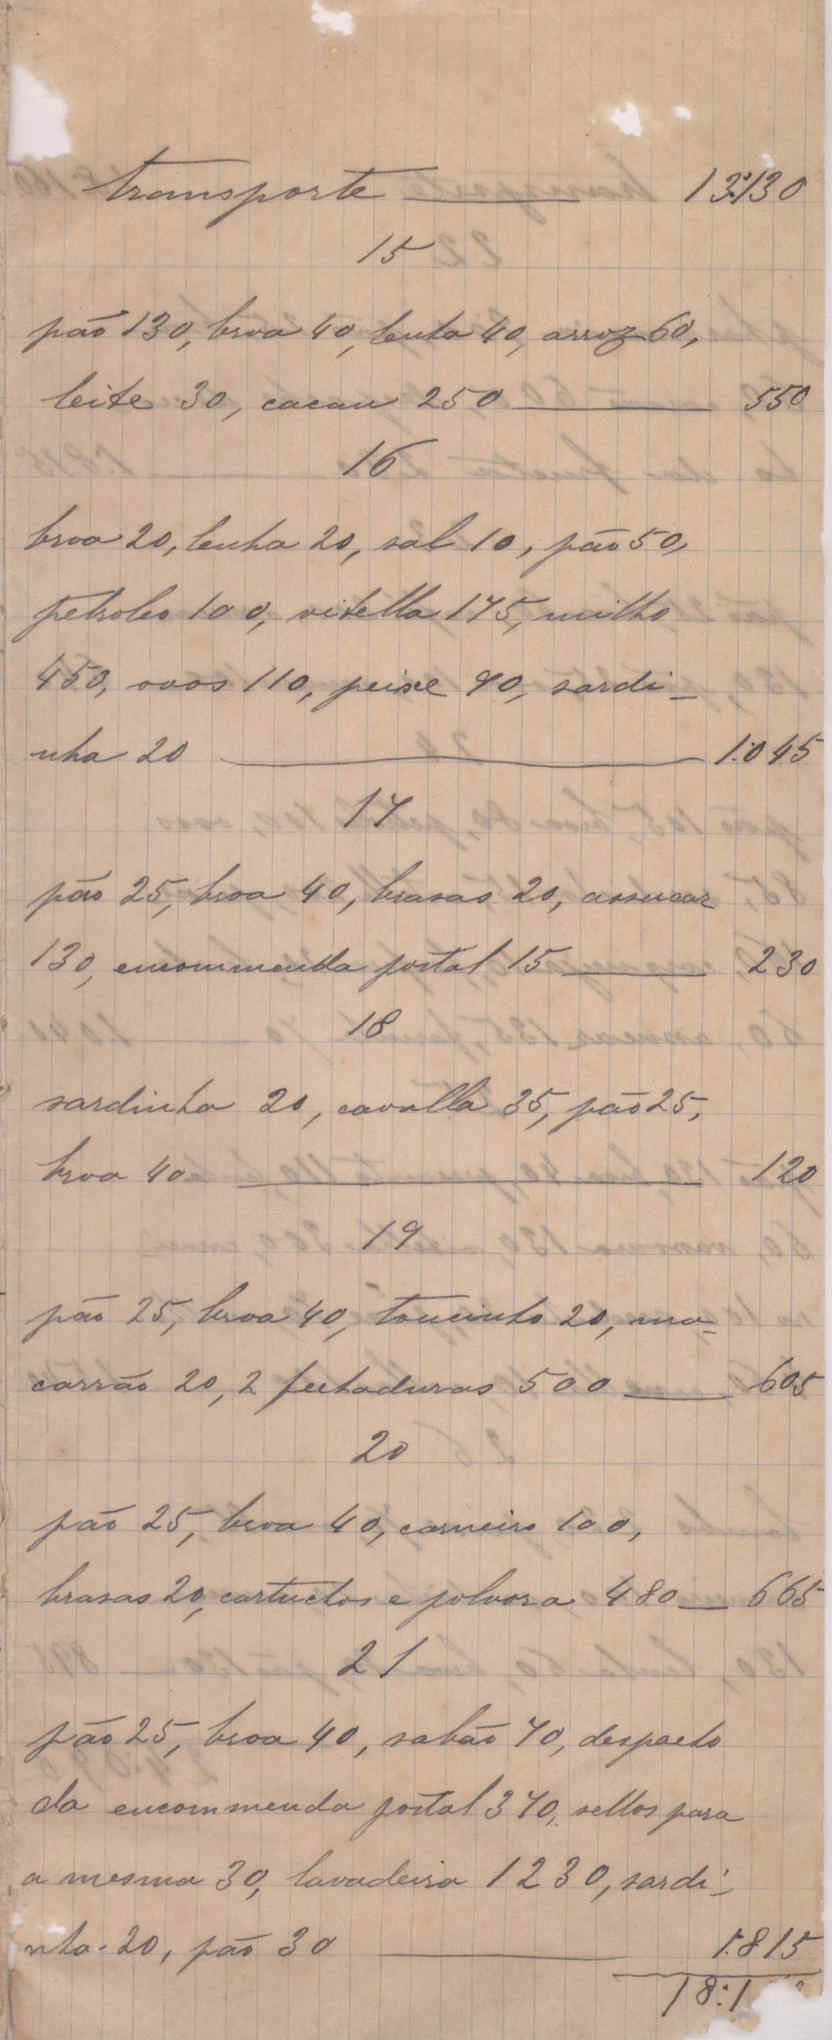 transporte 13:130
15
pão 130, broa 40, lenha 40, arroz 60,
leite 30, cacau 250 550
16
broa 20, lenha 20, sal 10, pão 50,
petroleo 100, vitella 175, milho
450, ovos 110, peixe 90, sardi-
nha 20 1:045
17
pão 25, broa 40, brasas 20, assucar
130, encommenda postal 15 230
18
sardinha 20, cavalla 35, pão 25,
broa 40 120
19
pão 25, broa 40, toucinho 20, ma-
carrão 20, 2 fechaduras 500 605
20
pão 25, broa 40, carneiro 100,
brasas 20, cartuchos e polvora 480 665
21
pão 25, broa 40, sabão 70, despacho
da encommenda postal 370, sellos para
a mesma 30, lavadeira 1230, sardi-
nha 20, pão 30 1:815
18:1